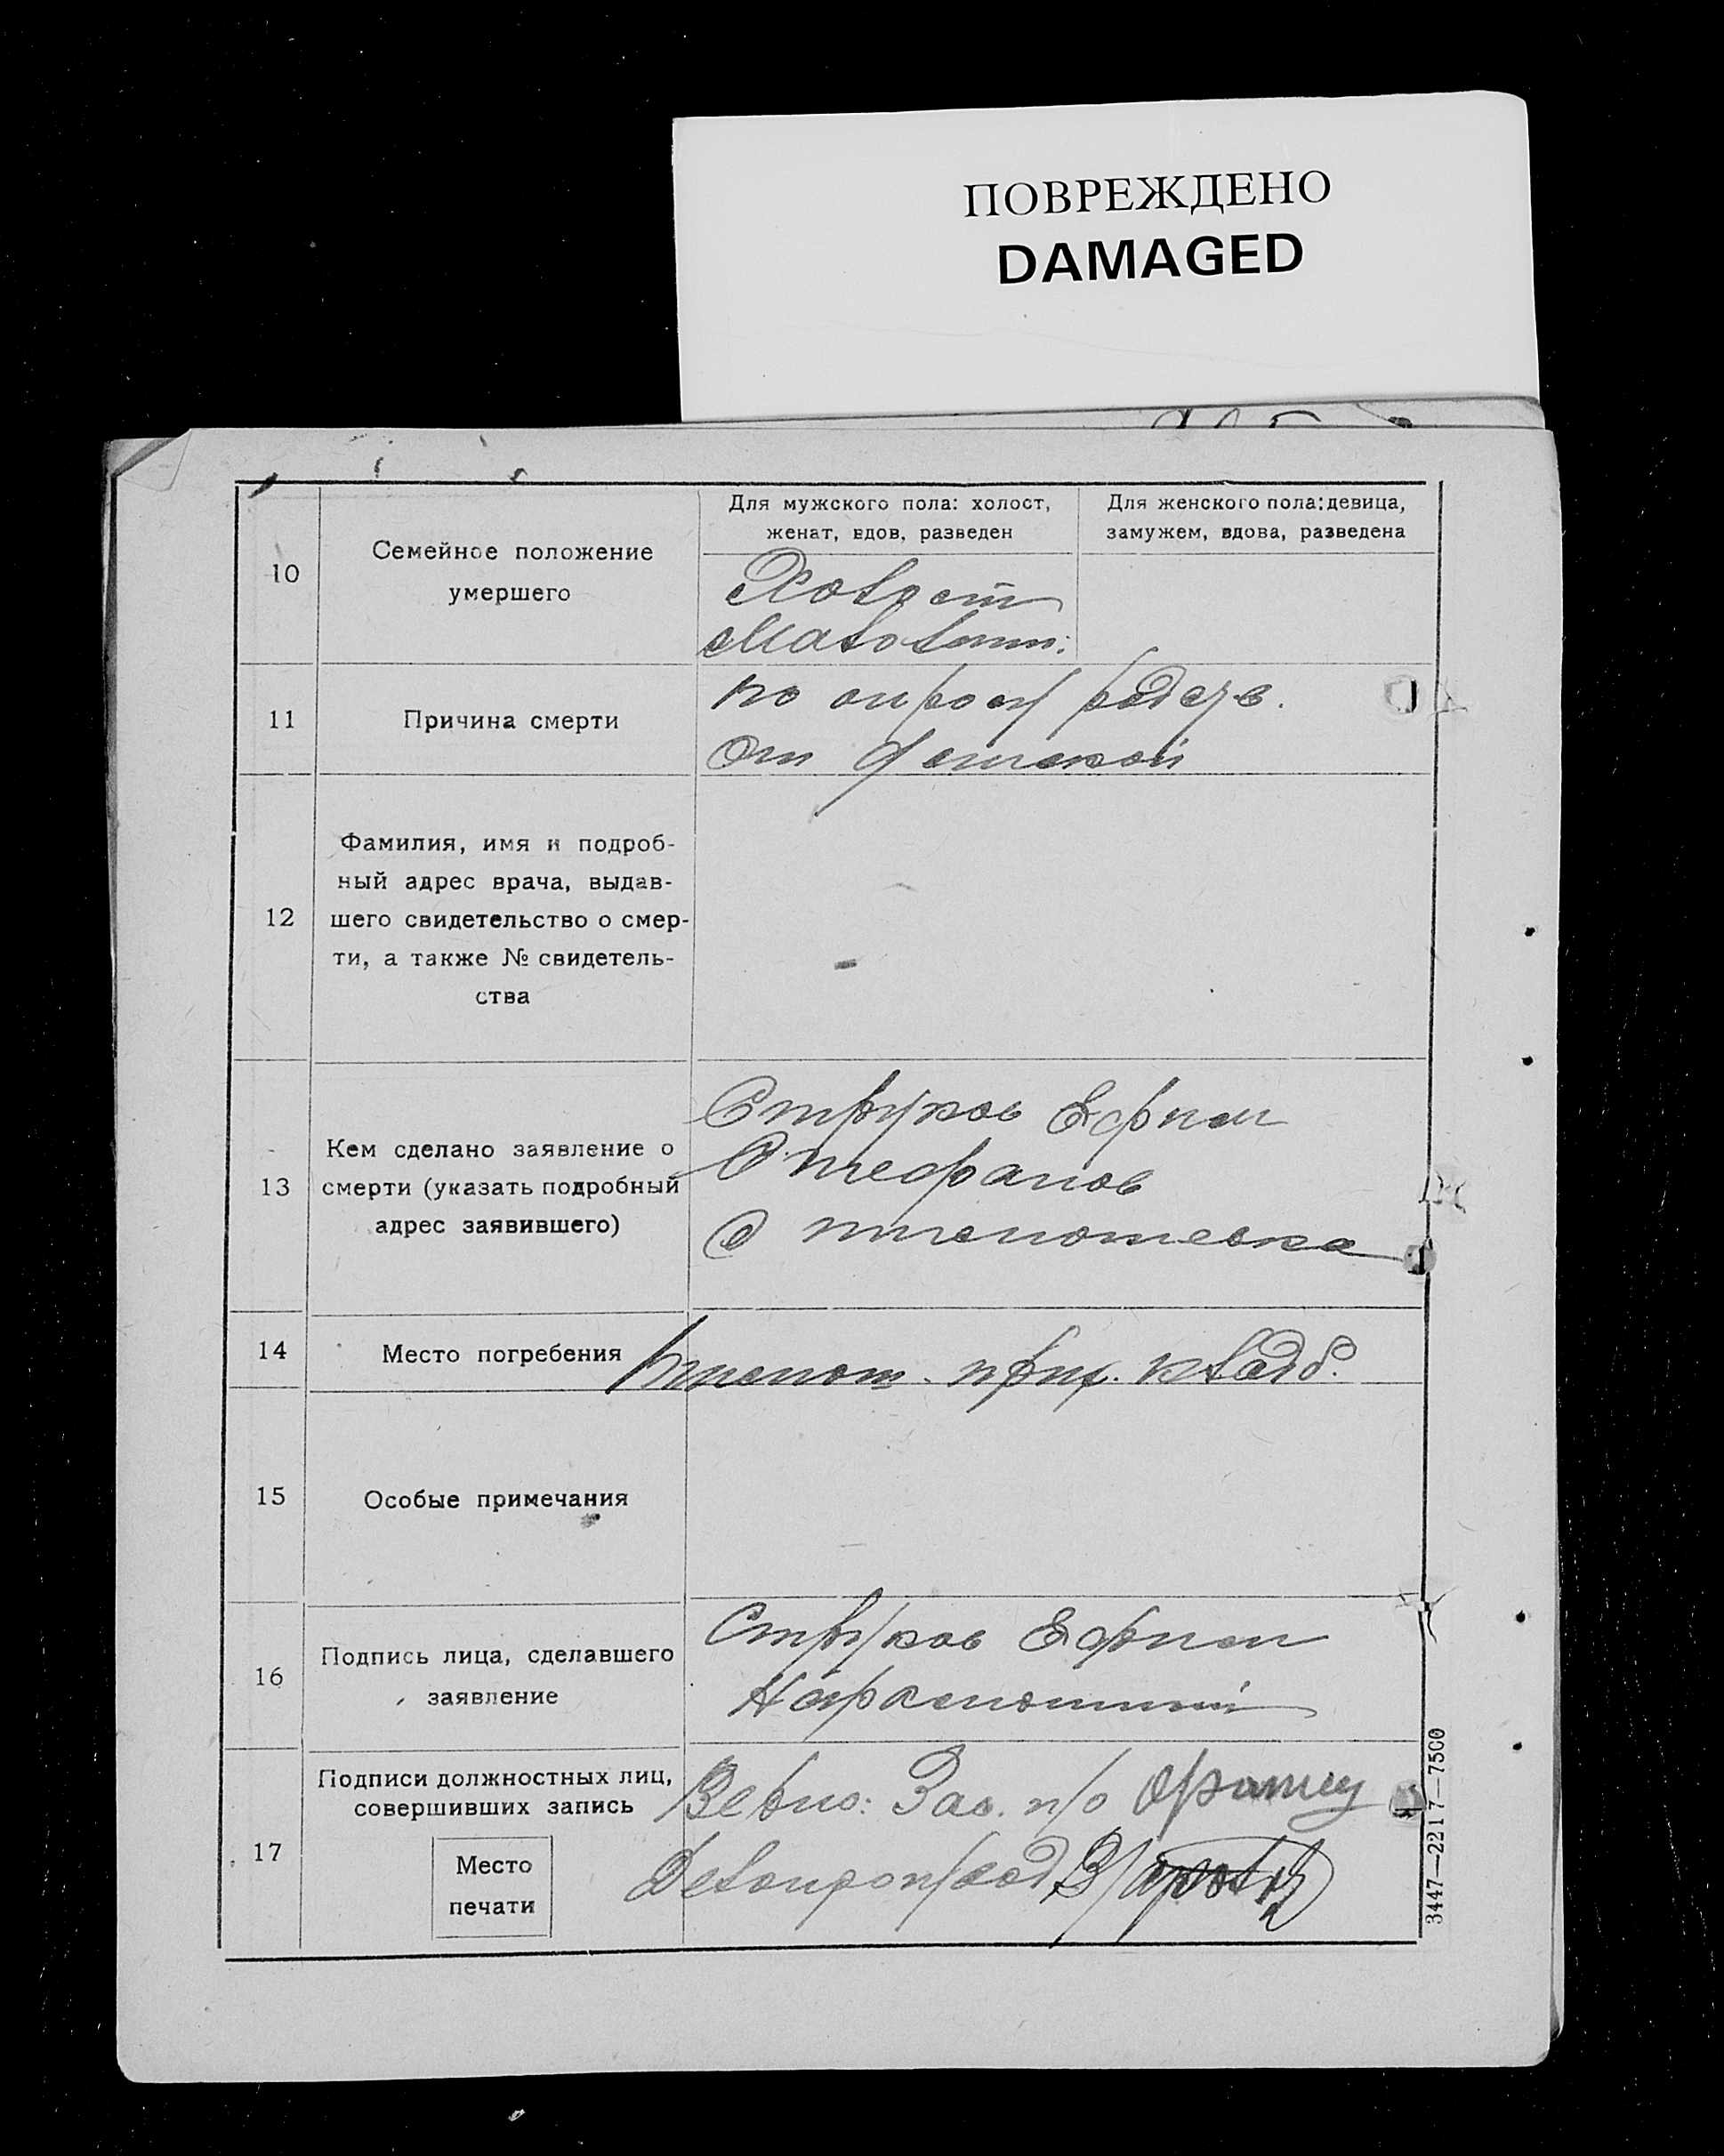 ПОВРЕЖДЕНО
DAMAGED
10
Семейное положение
умершего
Для мужского пола: холост,
женат, вдов, разведен
Для женского пола: девица,
замужем, вдова, разведена
Холост
Малолетн:
11
Причина смерти
по опросу
От детской
12
Фамилия, имя и подроб-
ный адрес врача, выдав-
шего свидетельство о смер-
ти, а также № свидетель-
ства
-
13
Кем сделано заявление о
смерти (указать подробный
адрес заявившего)
Струков Ефрем
Стефанов
С
14
Место погребения
прих. кладб.
15
Особые примечания
16
Подпись лица, сделавшего
заявление
Струков Ефрем
17
Подписи должностных лиц,
совершивших запись
Место
печати
Верно: Зав. п/о
Делопроизвод
3447—2217—7500